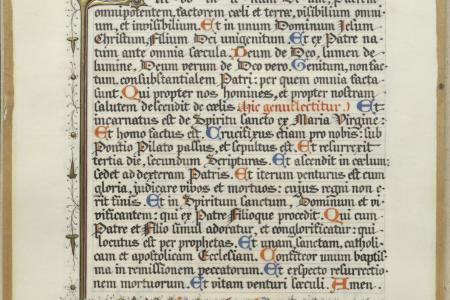 omnipotentem, factorem cœli et terræ, visibilium omni-
um, et invisibilium. Et in unum Dominum Jesum
Christum, Filium Dei unigenitum. Et ex Patre na-
tum ante omnia sæcula. Deum de Deo, lumen de
lumine, Deum verum de Deo vero. Genitum, non fac-
tum, consubstantialem Patri: per quem omnia facta
sunt. Qui propter nos homines, et propter nostram
salutem descendit de cœlis. (hic genuflectitur.) Et
incarnatus est de Spiritu sancto ex Maria Virgine:
Et homo factus est. Crucifixus etiam pro nobis: sub
Pontio Pilato passus, et sepultus est. Et resurrexit
tertia die, secundum Scripturas. Et ascendit in cœlum:
sedet ad dexteram Patris. Et iterum venturus est cum
gloria, judicare vivos et mortuos: cujus regni non e-
rit finis. Et in Spiritum sanctum, Dominum et vi-
vificantem: qui ex Patre Filioque procedit. Qui cum
Patre et Filio simul adoratur, et conglorificatur: qui
locutus est per prophetas. Et unam, sanctam, catholi-
cam et apostolicam Ecclesiam. Confiteor unum baptis-
ma in remissionem peccatorum. Et exspecto resurrectio-
nem mortuorum. Et vitam venturi sæculi. Amen.